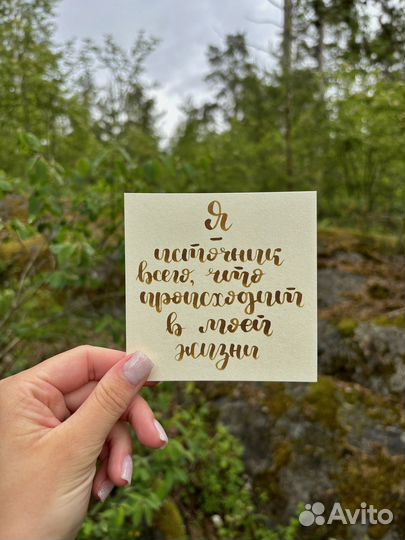 Я
–
источник
всего, что
происходит
в моей
жизни
Avito